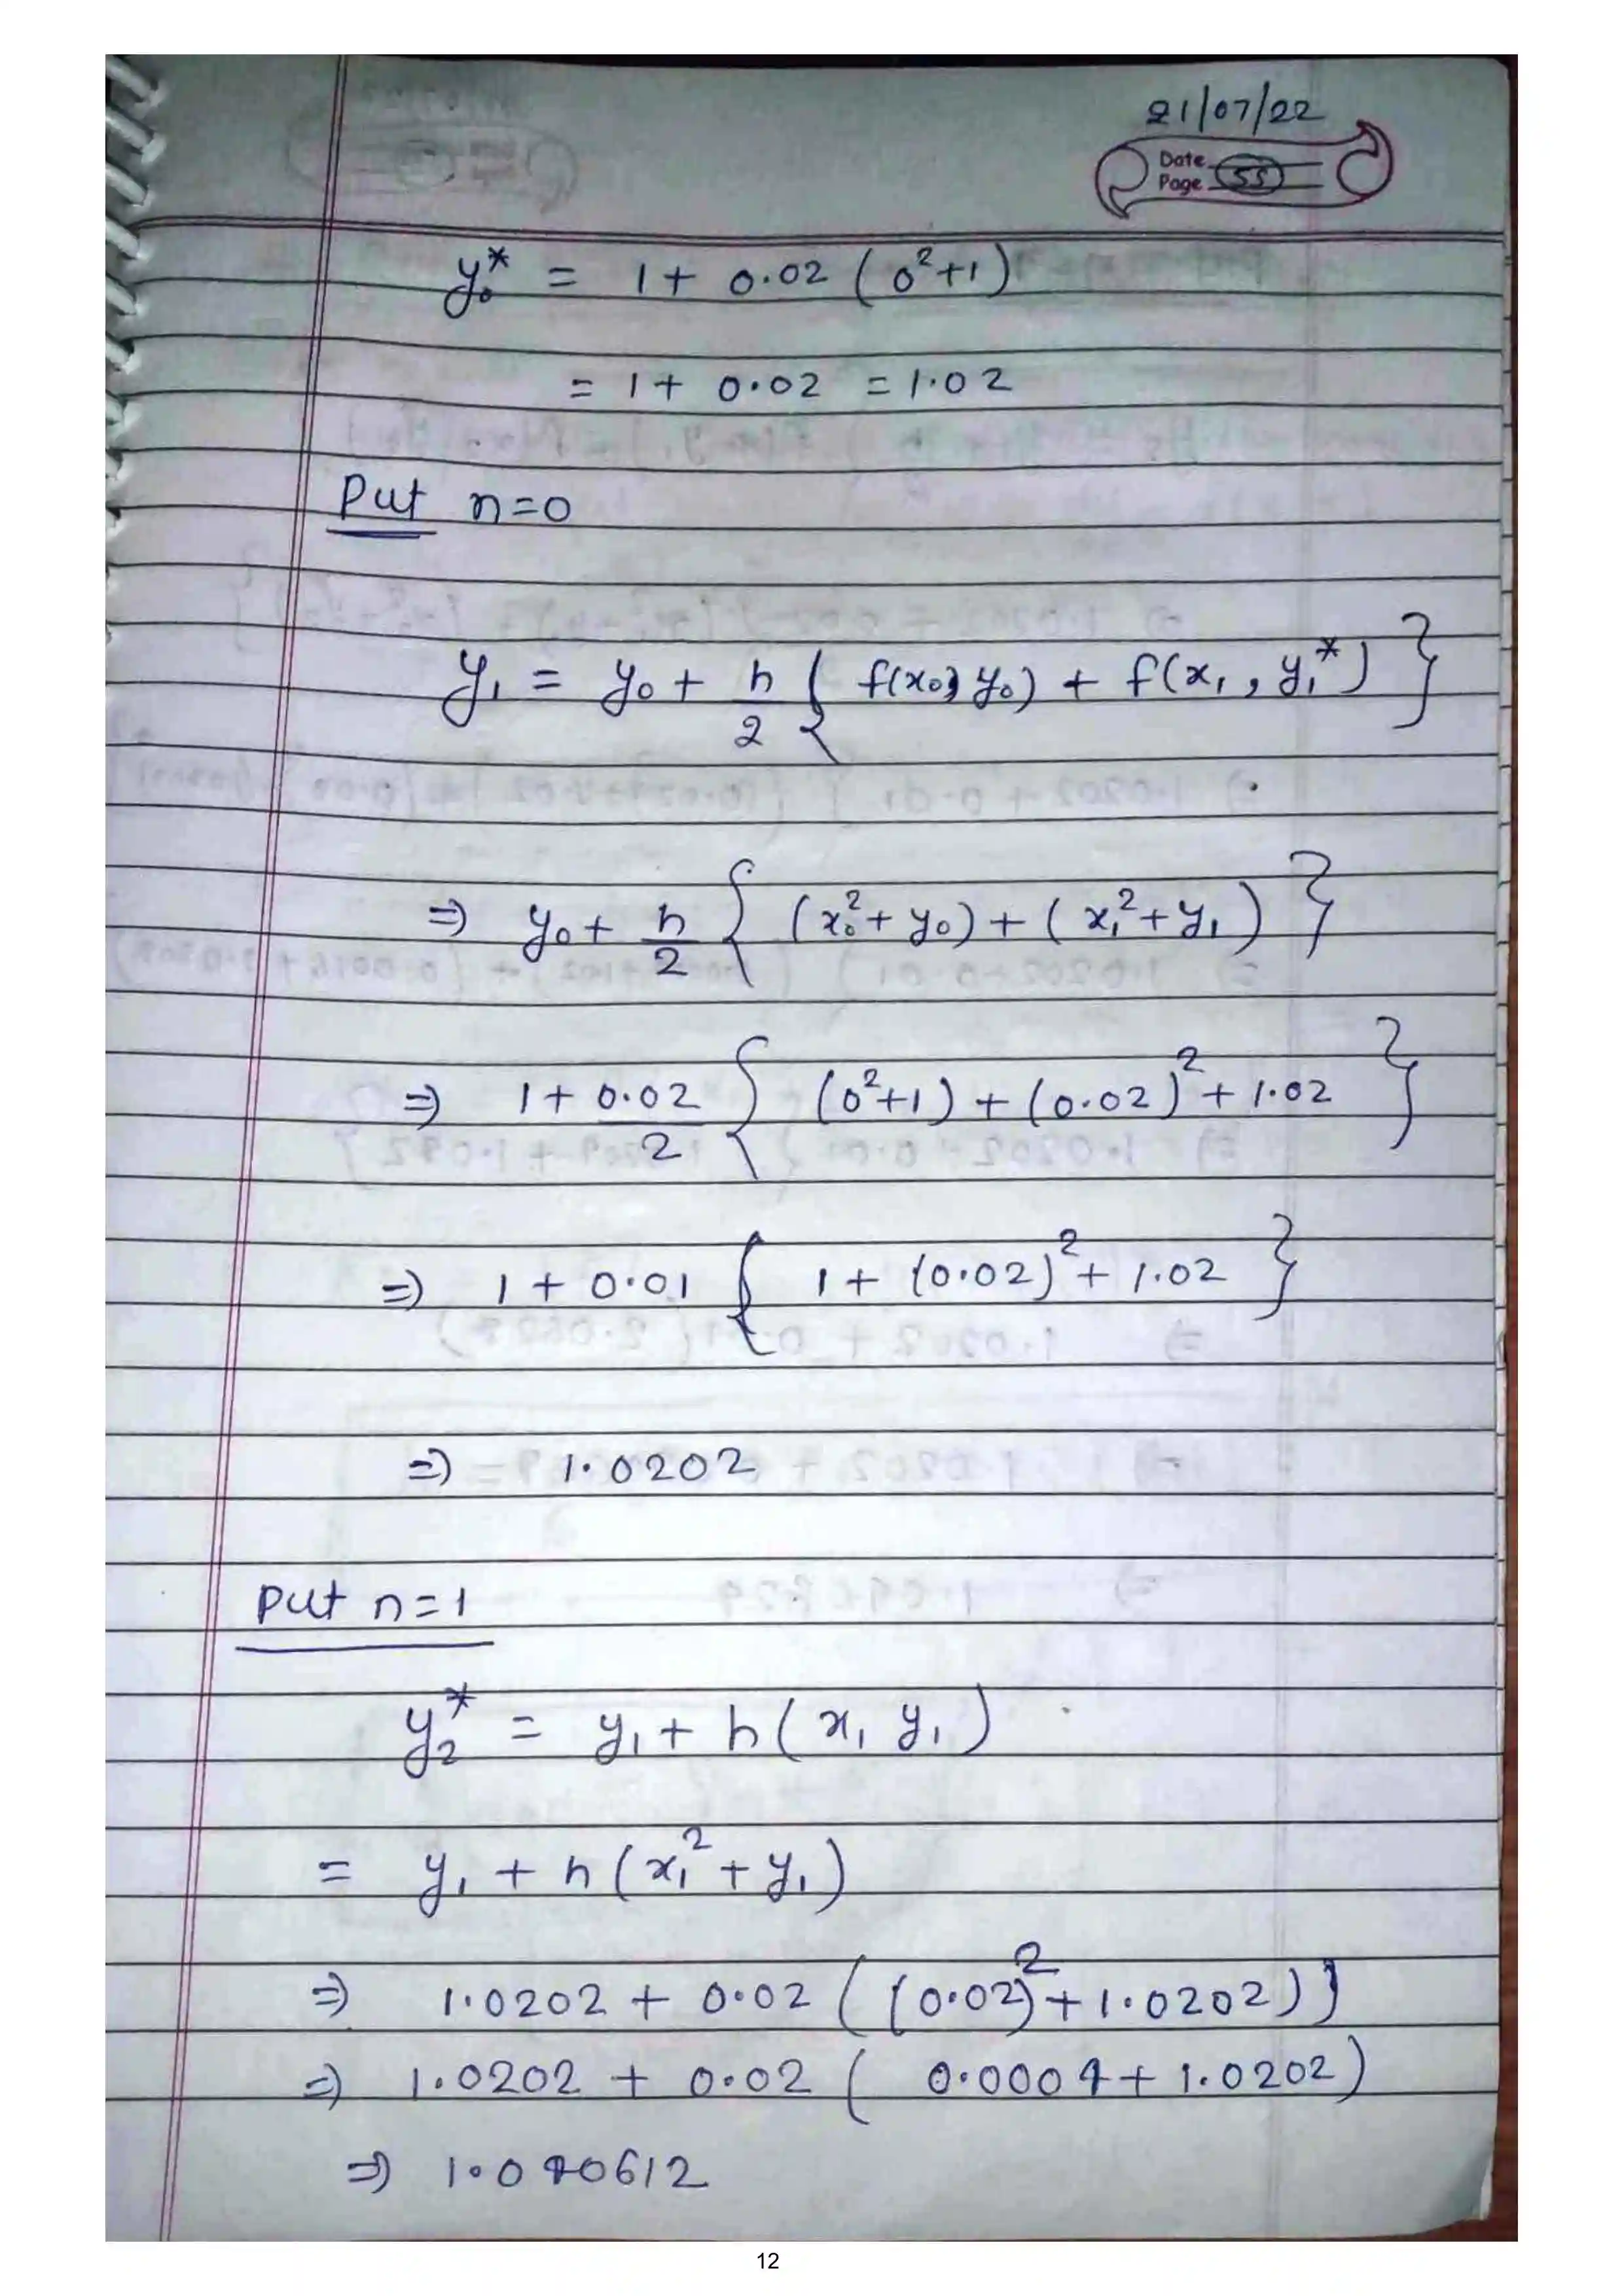 21/07/22
Date
Page 55
y₀* = 1 + 0.02 ( 0² + 1)
= 1 + 0.02 = 1.02
Put n=0
y₁ = y₀ + h/2 { f(x₀, y₀) + f(x₁, y₁*) }
⇒ y₀ + h/2 { (x₀² + y₀) + ( x₁² + y₁ ) }
⇒ 1 + 0.02/2 { (0²+1) + (0.02)² + 1.02 }
⇒ 1 + 0.01 { 1 + (0.02)² + 1.02 }
⇒ 1.0202
Put n=1
y₂* = y₁ + h ( x₁ y₁ )
= y₁ + h ( x₁² + y₁ )
⇒ 1.0202 + 0.02 ( (0.02)² + 1.0202) )
⇒ 1.0202 + 0.02 ( 0.0004 + 1.0202 )
⇒ 1.040612
12